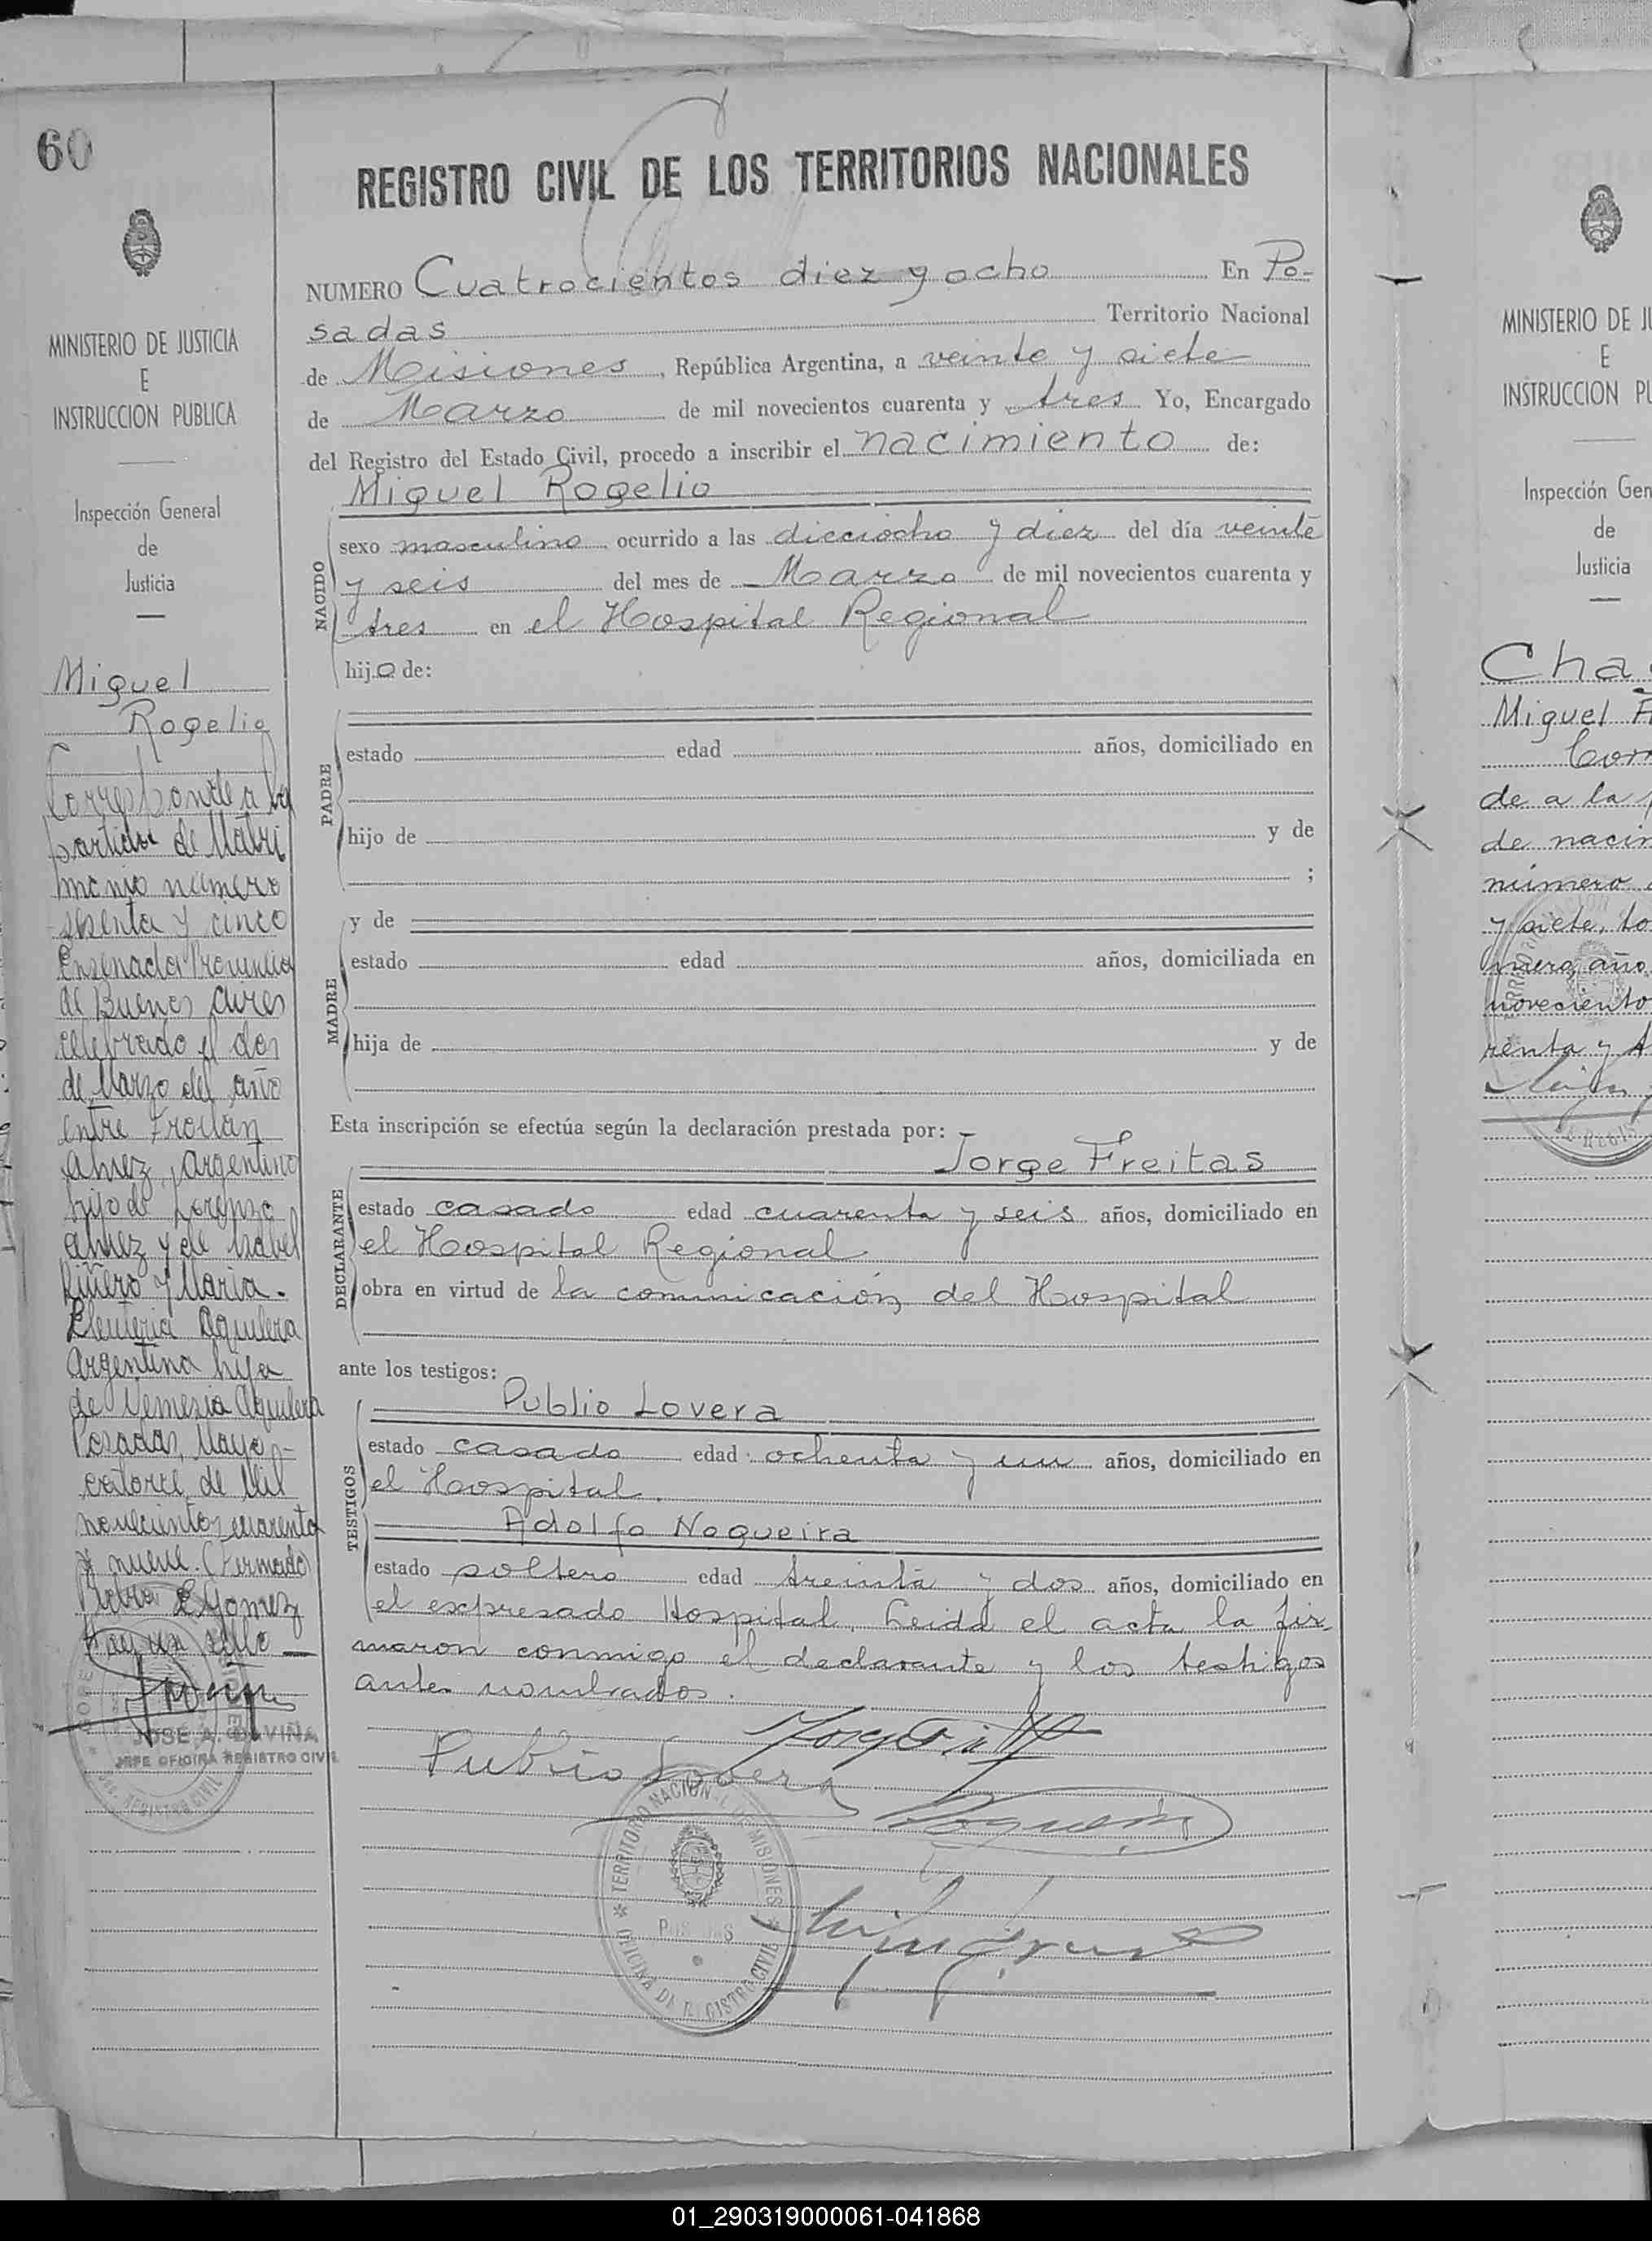 60
MINISTERIO DE JUSTICIA
E
INSTRUCCION PUBLICA
Inspección General
de
Justicia
Miguel
Rogelio
Corresponde a la
partida de Matri
monio número
sesenta y cinco
Ensenada Provincia
de Buenos Aires
celebrado el dos
de Marzo del año
entre Froilán
argentino
hijo de Lorenzo
y de Isabel
y Maria.
Eleuteria Aguilera
Argentina hija
de Nemesia Aguilera
Posadas, Mayo
catorce de Mil
novecientos cuarenta
y nueve. (Firmado)
Pedro E Gomez
Hay un sello
JOSE A. DAVIÑA
JEFE OFICINA REGISTRO CIVIL
REGISTRO CIVIL DE LOS TERRITORIOS NACIONALES
NUMERO Cuatrocientos diez y ocho En Po-
sadas Territorio Nacional
de Misiones, República Argentina, a veinte y siete
de Marzo de mil novecientos cuarenta y tres Yo, Encargado
del Registro del Estado Civil, procedo a inscribir el nacimiento de:
Miguel Rogelio
NACIDO
sexo masculino ocurrido a las dieciocho y diez del día veinte
y seis del mes de Marzo de mil novecientos cuarenta y
tres en el Hospital Regional
hijo de:
PADRE
estado edad años, domiciliado en
hijo de y de
;
MADRE
y de
estado edad años, domiciliada en
hija de y de
Esta inscripción se efectúa según la declaración prestada por:
Jorge Freitas
DECLARANTE
estado casado edad cuarenta y seis años, domiciliado en
el Hospital Regional
obra en virtud de la comunicación del Hospital
ante los testigos:
TESTIGOS
Publio Lovera
estado casado edad ochenta y un años, domiciliado en
el Hospital.
Adolfo Nogueira
estado soltero edad treinta y dos años, domiciliado en
el expresado Hospital. Leida el acta la fir-
maron conmigo el declarante y los testigos
antes nombrados.
Publio Lovera
TERRITORIO NACIONAL DE MISIONES
POSADAS
OFICINA DE REGISTRO CIVIL
MINISTERIO DE JU
E
INSTRUCCION PU
Inspección Gen
de
Justicia
Cha
Miguel
Corr
de a la
de nacim
número
y siete, to
año
novecientos
renta y t
01_290319000061-041868